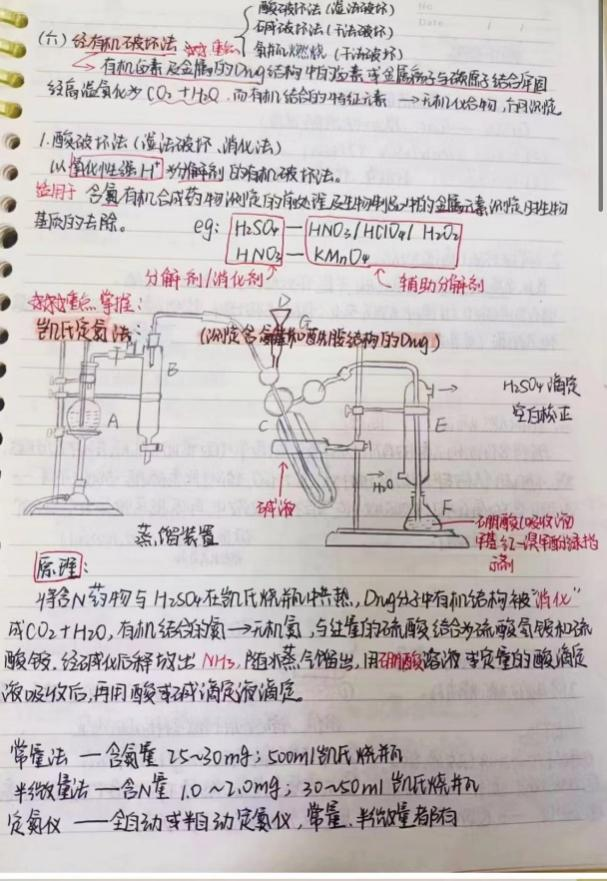 No.
Date
酸破坏法(湿法破坏)
碱破坏法(干法破坏)
氧瓶燃烧(干法破坏)
(六) 经有机破坏法 ☆☆重点
→有机卤素及金属的Drug结构中的卤素或金属离子与碳原子结合牢固
经高温氧化为CO₂+H₂O,而有机结合的待征元素→无机化合物,方可测定
1.酸破坏法(湿法破坏、消化法)
以氧化性强H⁺为分解剂的有机破坏法。
适用于 含氮有机合成药物测定的前处理及生物制品中的金属元素测定时生物
基质的去除。
eg: H₂SO₄—HNO₃/HClO₄/H₂O₂
HNO₃—KMnO₄
分解剂/消化剂 辅助分解剂
☆☆重点掌握:
凯氏定氮法: (测定含氨基和酰胺结构的Drug)
A
B
C
D
G
E
F
H₂O
H₂SO₄滴定
空白校正
碱液
硼酸(吸收液)
甲基红-溴甲酚绿指
示剂
蒸馏装置
原理:
将含N药物与H₂SO₄在凯氏烧瓶中共热,Drug分子中有机结构被"消化"
成CO₂+H₂O,有机结合的氮→无机氮,与过量的硫酸结合为硫酸氢铵和硫
酸铵.经碱化后释放出NH₃,随水蒸气馏出,用硼酸溶液或定量的酸滴定
液吸收后,再用酸或碱滴定液滴定。
常量法—含氮量 25~30mg;500ml凯氏烧瓶
半微量法—含N量 1.0~2.0mg;30~50ml凯氏烧瓶
定氮仪—全自动或半自动定氮仪,常量、半微量都有